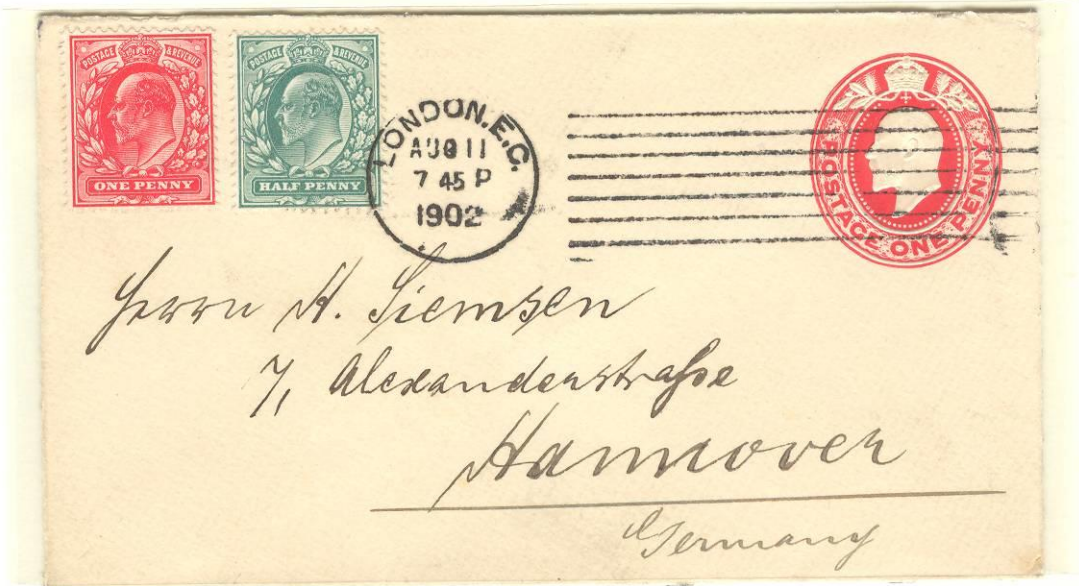 POSTAGE & REVENUE
ONE PENNY
POSTAGE & REVENUE
HALF PENNY
LONDON.E.C.
AUG 11
7 45 P
1902
POSTAGE ONE PENNY
Herrn H. Siemsen
7, Alexanderstraße
Hannover
Germany